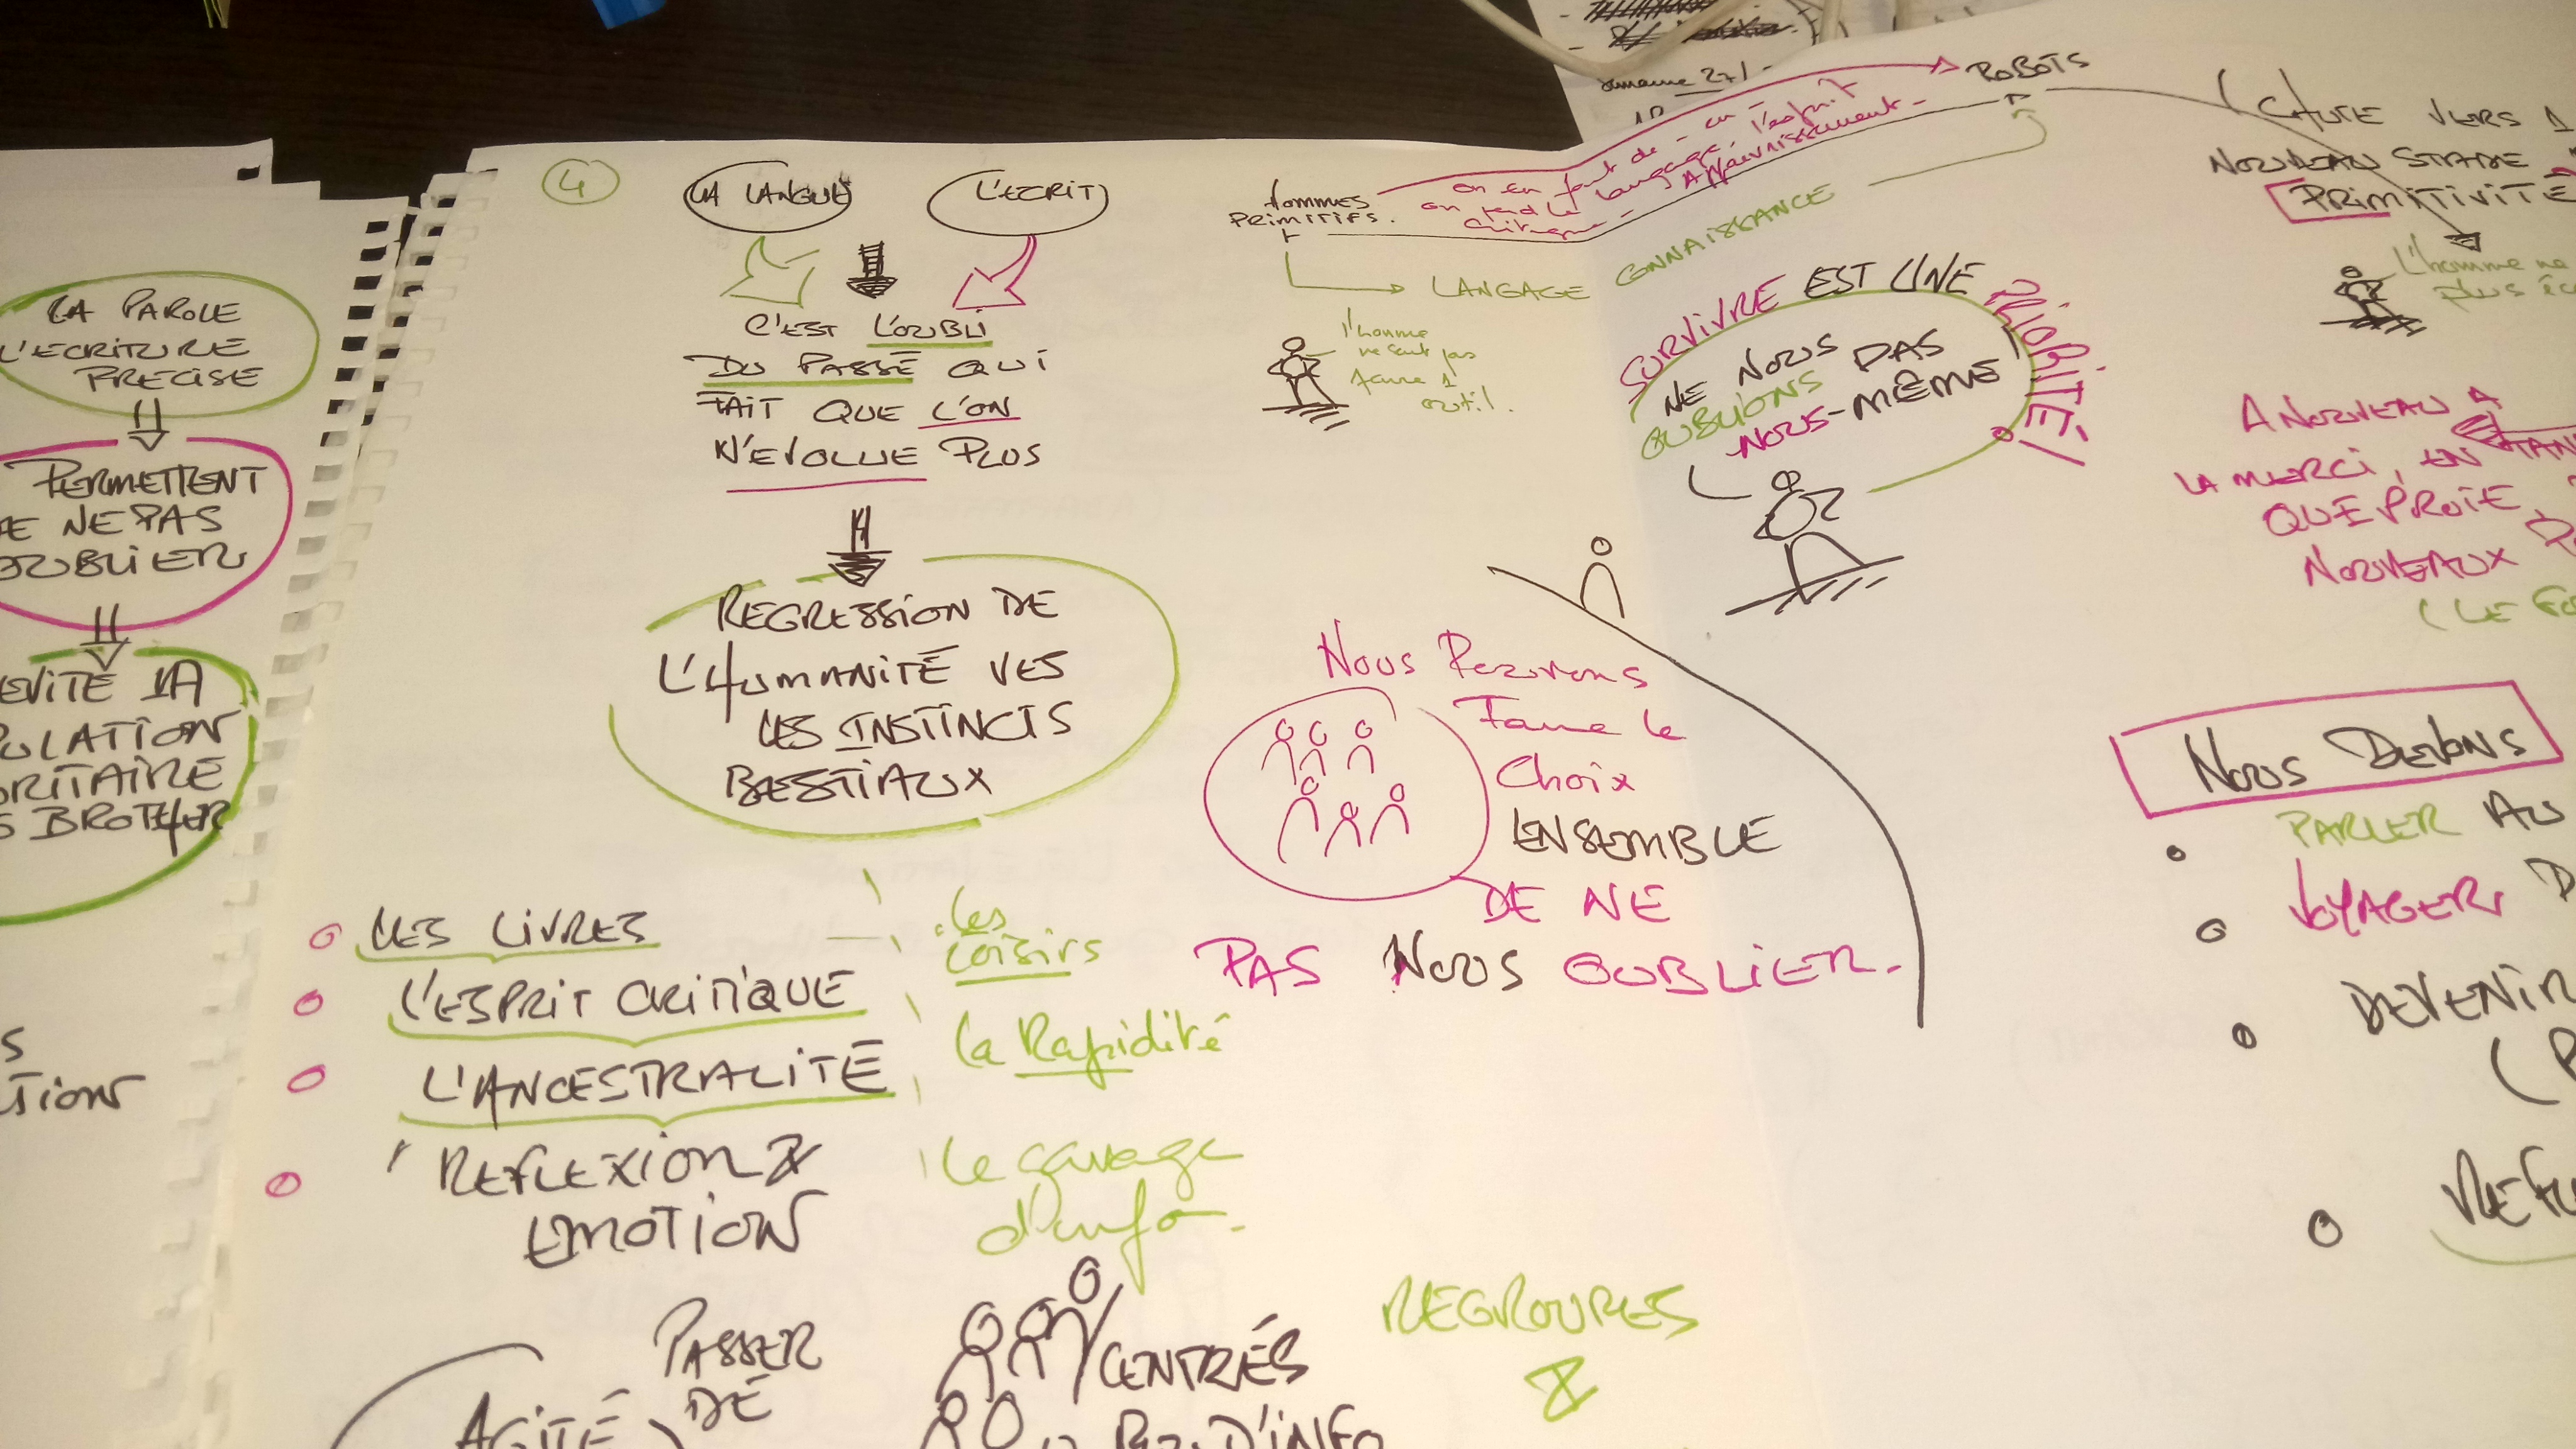 LA PAROLE
L'ECRITURE
PRECISE
PERMETTENT
DE NE PAS
OUBLIER
EVITE LA
BROTHER
4
LA LANGUE
L'ECRIT
C'EST L'OUBLI
DU PASSÉ QUI
FAIT QUE L'ON
N'EVOLUE PLUS
REGRESSION DE
L'HUMANITÉ VES
LES INSTINCTS
BESTIAUX
LES LIVRES
L'ESPRIT CRITIQUE
L'ANCESTRALITÉ
REFLEXION &
EMOTION
les
loisirs
la Rapidité
le
d'info.
PASSER
DE
AGITÉ
CENTRÉS
D'INFO
REGROUPES
&
HOMMES
PRIMITIFS.
on en fait de
on perd le langage, l'esprit
critique. Appauvrissement.
ROBOTS
LANGAGE
CONNAISSANCE
l'homme
ne sait pas
faire 1
outil.
SURVIVRE EST UNE PRIORITÉ!
NE NOUS PAS
OUBLIONS
NOUS-MÊME
Nous Pouvons
Faire le
Choix
ENSEMBLE
DE NE
PAS NOUS OUBLIER.
semaine 27/
CHUTE VERS 1
NOUVEAU STADE
PRIMITIVITÉ
L'homme ne
plus
A NOUVEAU A
LA MERCI, EN TANT
QUE PROIE
NOUVEAUX
(LE
NOUS DEVONS
PARLER AU
VOYAGER
DEVENIR